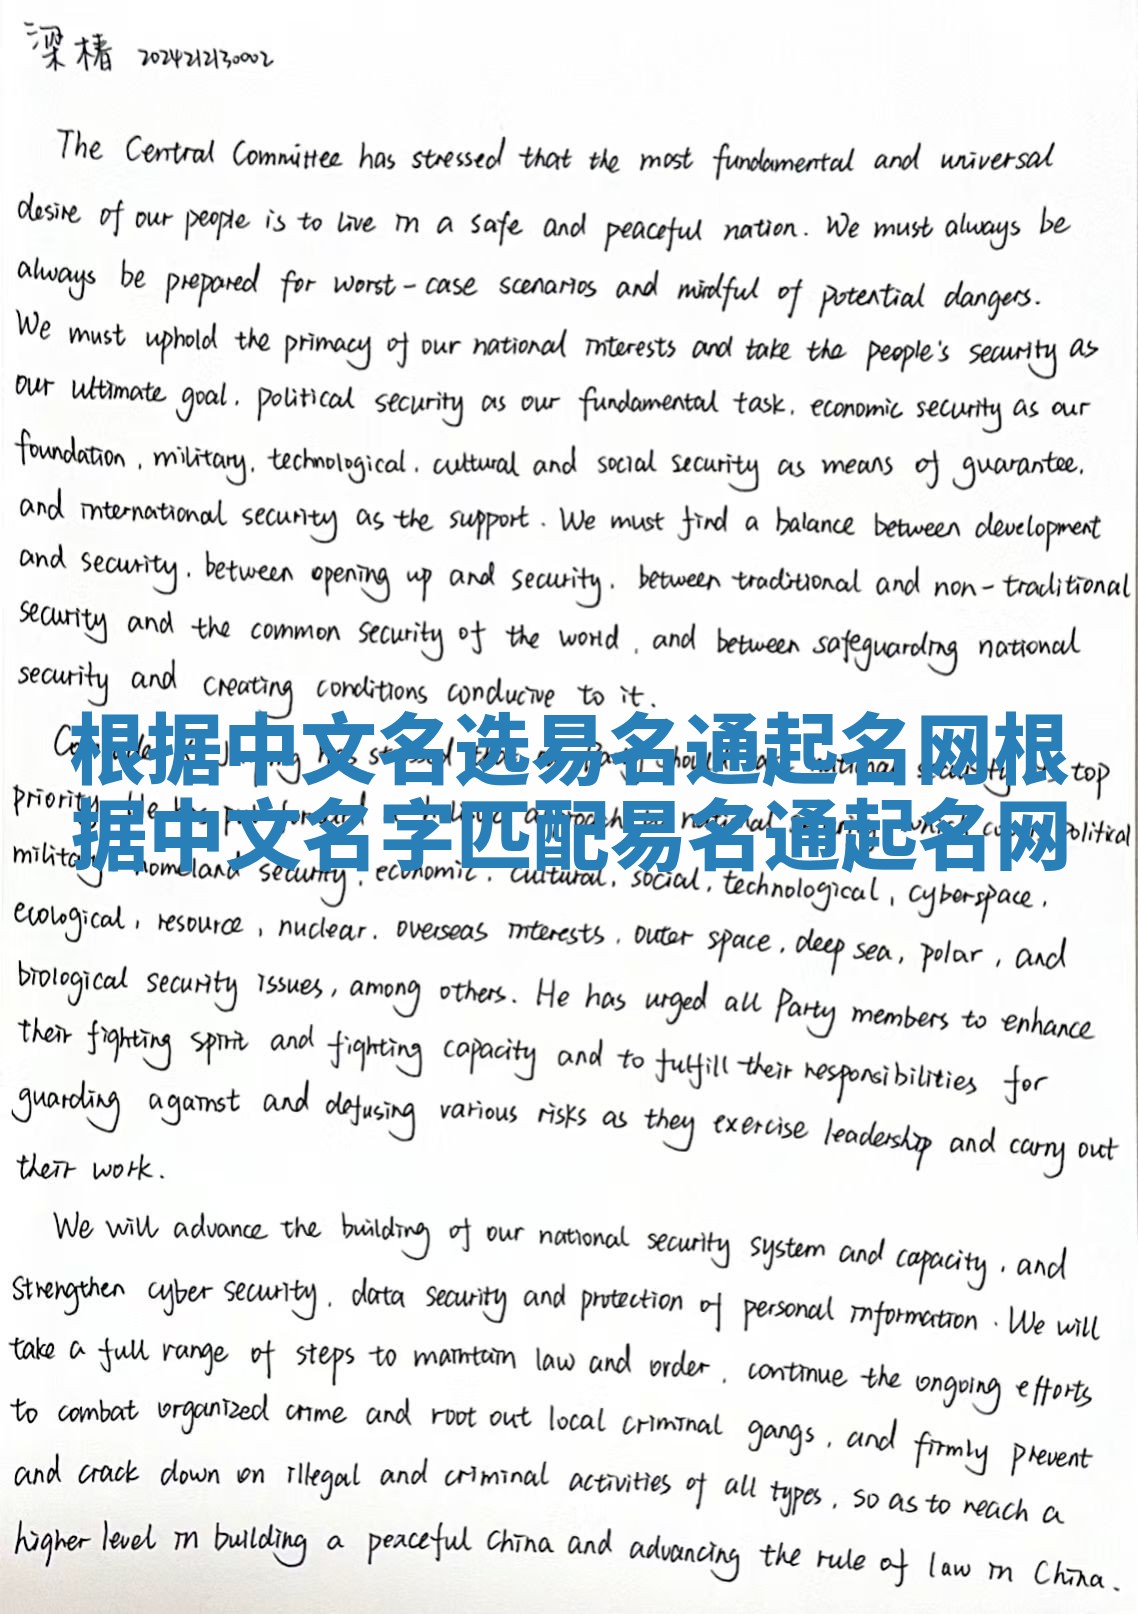 梁椿 2024212130002
The Central Committee has stressed that the most fundamental and universal
desire of our people is to live in a safe and peaceful nation. We must always be
always be prepared for worst-case scenarios and mindful of potential dangers.
We must uphold the primacy of our national interests and take the people's security as
our ultimate goal, political security as our fundamental task, economic security as our
foundation, military, technological, cultural and social security as means of guarantee,
and international security as the support. We must find a balance between development
and security, between opening up and security, between traditional and non-traditional
security and the common security of the world, and between safeguarding national
security and creating conditions conducive to it.
根据中文名选易名通起名网根
据中文名字匹配易名通起名网
has stressed national security top
priority. He has put forward national political
military homeland security, economic, cultural, social, technological, cyberspace,
ecological, resource, nuclear, overseas interests, outer space, deep sea, polar, and
biological security issues, among others. He has urged all Party members to enhance
their fighting spirit and fighting capacity and to fulfill their responsibilities for
guarding against and defusing various risks as they exercise leadership and carry out
their work.
We will advance the building of our national security system and capacity, and
strengthen cyber security, data security and protection of personal information. We will
take a full range of steps to maintain law and order, continue the ongoing efforts
to combat organized crime and root out local criminal gangs, and firmly prevent
and crack down on illegal and criminal activities of all types, so as to reach a
higher level in building a peaceful China and advancing the rule of law in China.